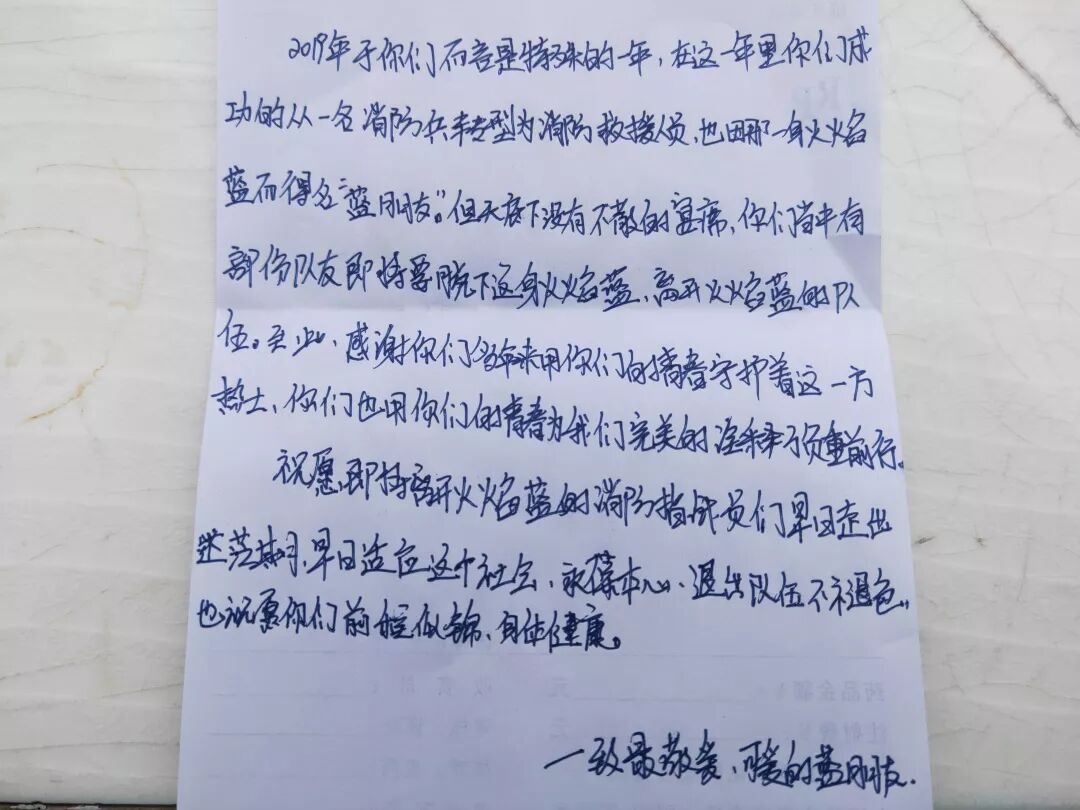 2019年于你们而言是特殊的一年,在这一年里你们成
功的从一名消防兵转型为消防救援人员,也因那一身火焰
蓝而得名“蓝朋友”。但天底下没有不散的宴席,你们当中有
部份队友即将要脱下这身火焰蓝,离开火焰蓝的队
伍。至此、感谢你们多年来用你们的青春守护着这一方
热土、你们也用你们的青春为我们完美的诠释了负重前行。
祝愿即将离开火焰蓝的消防指战员们早日走出
迷茫期,早日适应这个社会、永葆本心、退出队伍不褪色,
也祝愿你们前程似锦、身体健康。
一致最敬爱、可爱的蓝朋友.
药品金额
元
收费
注射费
元